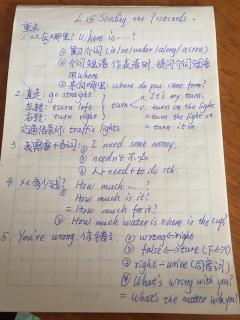 L15 Sending the Postcards.
重点
1. xx在哪里? Where is ...?
① 复习介词(in/on/under/along/across)
② 介词短语作表语时,提问介词短语
用Where
③ 来自哪里: Where do you come from?
2. 直走: go straight n. It's my turn.
左转: turn left turn v. turn on the light
右转: turn right = turn the light on
交通信号灯: traffic lights = turn it on
3. 我需要 ① I need some money.
② needn't 不必
③ need to do sth.
4. xx多少钱? How much ...?
① How much is it?
= How much for it?
② How much water is there in the cup?
5. You're wrong. 你错了. ① wrong↔right
② false↔ture (F↔T)
③ right-write (同音词)
④ What's wrong with you?
= What's the matter with you?